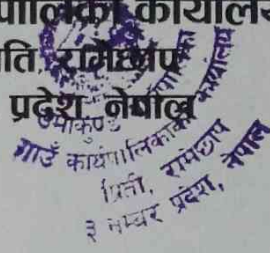 पालिका कार्यालय
ती, रामेछाप
प्रदेश, नेपाल
उमाकुण्ड
गाउँ कार्यपालिकाको कार्यालय
प्रिती, रामेछाप
३ नम्बर प्रदेश, नेपाल